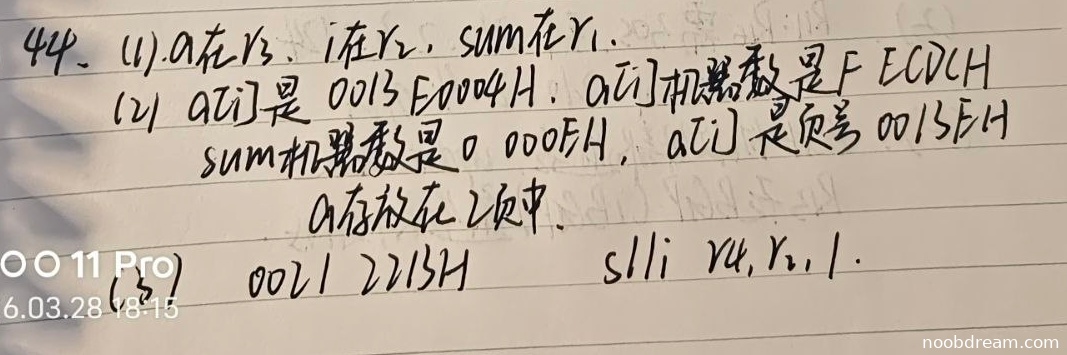 44、(1).a在r3、i在r2，sum在r1.
(2) a[i]是 0013 E0004H. a[i]机器数是F ECDCH
sum机器数是0 000EH, a[i] 是页号 0013EH
a存放在2页中.
(3) 0021 2213H slli r4, r2, 1.
OO 11 Pro
6.03.28 18:15
noobdream.com